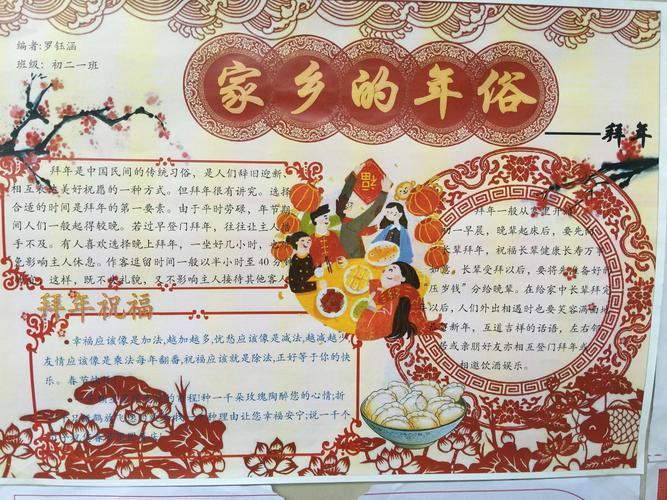 编者:罗钰涵
班级：初二一班
家乡的年俗
——拜年
拜年是中国民间的传统习俗，是人们辞旧迎新、
相互表达美好祝愿的一种方式。但拜年很有讲究。选择
合适的时间是拜年的第一要素。由于平时劳碌，年节期
间人们一般起得较晚。若过早登门拜年，往往让主人措
手不及。有人喜欢选择晚上拜年，一坐好几小时，也
免影响主人休息。作客逗留时间一般以半小时至40分
这样，既不 礼貌，又不影响主人接待其他客人
拜年祝福
幸福应该像是加法,越加越多,忧愁应该像是减法,越减越少
友情应该像是乘法每年翻番,祝福应该就是除法,正好等于你的快
乐。春节
程!种一千朵玫瑰陶醉您的心情;折
种理由让您幸福安宁;说一千个
拜年一般从家里开
初一早晨，晚辈起床后，要先
长辈拜年，祝福长辈健康长寿万事
如意。长辈受拜以后，要将 准备好的
“压岁钱”分给晚辈。在给家中长辈
年以后，人们外出相遇时也要笑容满面地
新年，互道吉祥的话语，左右邻
居或亲朋好友亦相互登门拜年或
相邀饮酒娱乐。